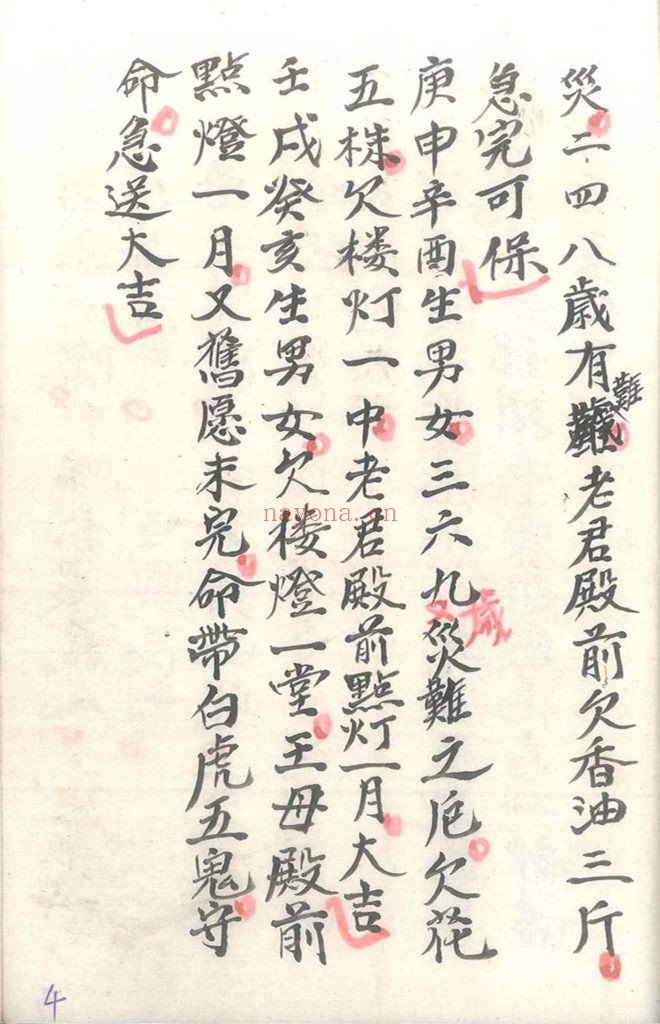 災二四八歲有難老君殿前欠香油三斤
難
急完可保
庚申辛酉生男女三六九災難之厄欠花
歲
五株欠楼灯一中老君殿前點灯一月大吉
壬戌癸亥生男女欠楼燈一堂王母殿前
點燈一月又舊愿未完命帶白虎五鬼守
命急送大吉
nayona.cn
4